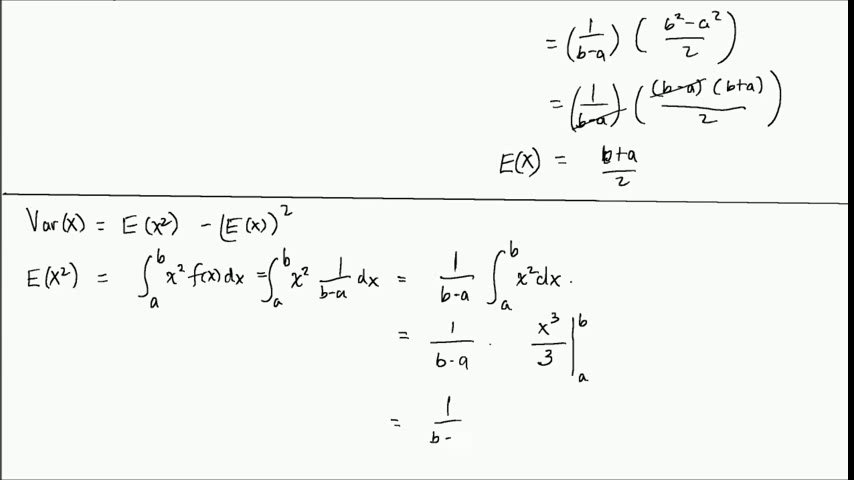 = (1/(b-a)) ((b²-a²)/2)
= (1/(b-a)) ((b-a)(b+a)/2)
E(X) = (b+a)/2
Var(X) = E(X²) - (E(X))²
E(X²) = ∫_a^b x² f(x) dx = ∫_a^b x² 1/(b-a) dx = 1/(b-a) ∫_a^b x² dx.
= 1/(b-a) · x³/3 |_a^b
= 1/(b-